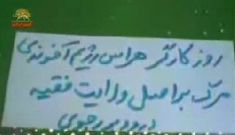 روز کارگر هراس رژیم آفرندی
مرگ بر اصل ولایت فقیه
درود بر رجوی